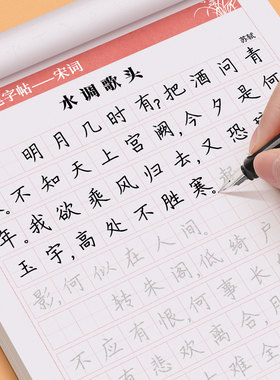 字帖——宋词
水调歌头
苏轼
明月几时有?把酒问青
。不知天上宫阙,今夕是何
年。我欲乘风归去,又恐琼
玉宇,高处不胜寒。起
影,何似在人间。
转朱阁,低绮户
不应有恨,何事长
有悲欢离合,月
难全